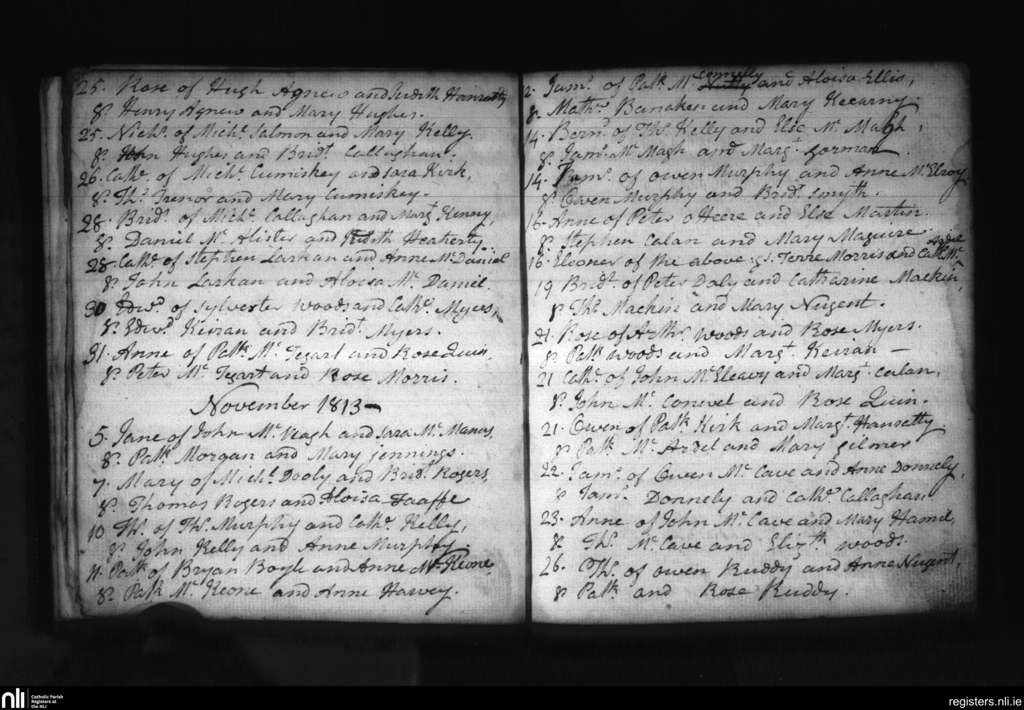 25. Rose of Hugh Agnew and Judith Hanratty
8r. Henry Agnew and Mary Hughes.
25. Nichs. of Michl. Salmon and Mary Kelly.
8r. Hughes and Bridt. Callaghan.
26. Cathe. of Michl. Cumiskey and Sara Kirk,
8r. Ths. Trenor and Mary Cumiskey.
28. Bridt. of Michl. Callaghan and Margt. Kenny,
8r. Daniel Mc. Alister and Judith Heaherty.
28. Cathe. of Stephen Larkan and Anne Mc. Daniel
8r. John Larkan and Aloisa Mc. Daniel.
30 Edwd. of Sylvester Woods and Cathe. Myers,
8r. Edwd. Keiran and Bridt. Myers.
31. Anne of Patk. Mc. Tegart and Rose Quin,
8r. Peter Mc. Tegart and Rose Morris.
November 1813
5. Jane of John Mc. Veagh and Sara Mc. Manus,
8r. Patk. Morgan and Mary Jennings.
7. Mary of Michl. Dooly and Bridt. Rogers,
8r. Thomas Rogers and Aloisa Haaffe
10 Ths. of Ths. Murphy and Cathe. Kelly,
8r. John Kelly and Anne Murphy.
11. Patk. of Bryan Boyle and Anne Mc. Keone
8r. Patk Mc. Keone and Anne Harvey.
2. Jams. of Patk Mc. Connelly and Aloisa Ellis,
8r. Mathw. Banakes and Mary Keearny.
14. Bernd. of Ths. Kelly and Else Mc. Magh,
8r. Jams. Mc. Magh and Margt. Gorman.
14. Jams. of Owen Murphy and Anne Mc. Elroy
8r. Owen Murphy and Bridt. Smyth.
16. Anne of Peter o Heere and Else Martin.
8r. Stephen Calan and Mary Maguire.
16. Eleoner of the above. Terre Morris and Cathe. Mc. Ardel
19 Bridt. of Peter Daly and Catharine Mackin,
8r. Ths. Mackin and Mary Nugent.
21. Rose of Arthr. Woods and Rose Myers.
8r. Patk Woods and Margt. Keiran —
21 Cathe. of John Mc. Eleavy and Margt. Calan,
8r. John Mc. Conevel and Rose Quin.
21. Owen of Patk Kirk and Margt. Hansetty
8r Patk Mc. Ardel and Mary Gilmer
22. Jams. of Owen Mc. Cave and Anne Donnely,
8r Jams. Donnely and Cathe. Callaghan
23. Anne of John Mc. Cave and Mary Hamil,
8r Ths. Mc. Cave and Elizth. Woods.
26. Ths. of Owen Ruddy and Anne Nugent,
8r Patk. and Rose Ruddy.
nli Catholic Parish
Registers at
the NLI
registers.nli.ie